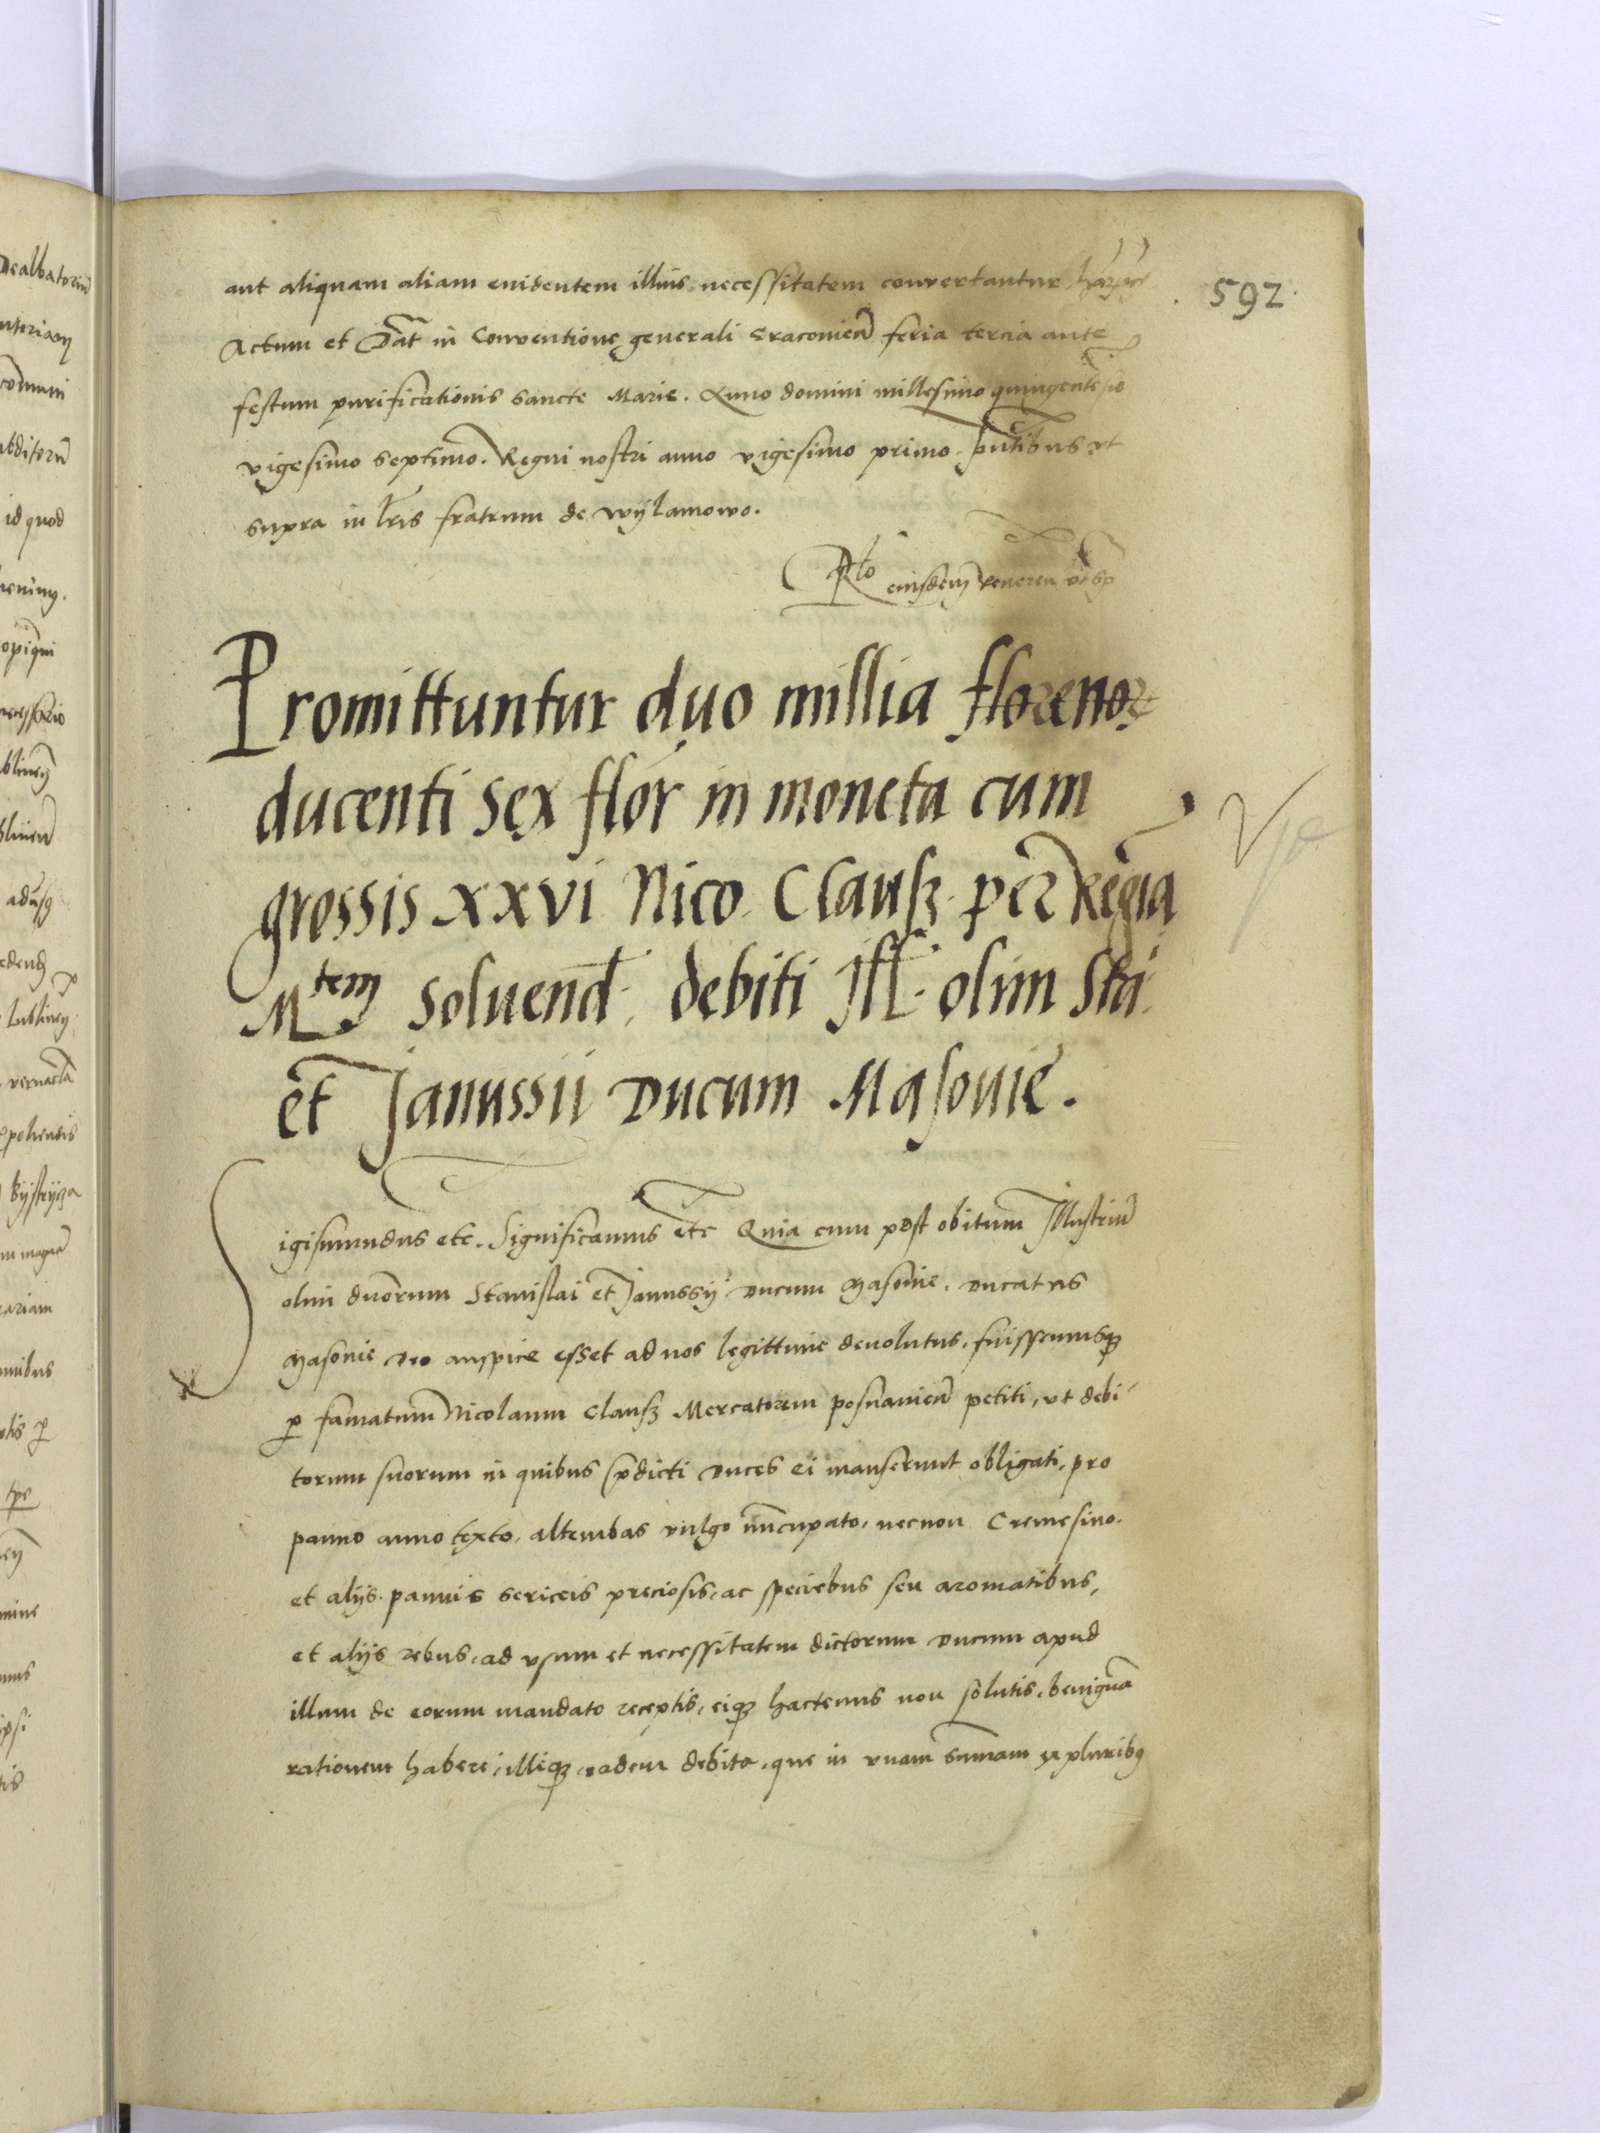 aut aliquam aliam euidentem illius necessitatem convertantur
592
Actum et Dat in Conventione generali Cracovien feria tercia ante
festum purificationis sancte Marie. Anno domini millesimo quingentesimo
vigesimo septimo. Regni nostri anno vigesimo primo. pntibus vt
supra in lris fratrum de Wylamowo.
Rlo eiusdem
Promittuntur duo millia floreno
ducenti sex flor in moneta cum
grossis xxvi Nico. Clausz. per Regia
Mtem soluend. debiti Ill. olim Sta.
et Janussii Ducum Masouie.
Sigismundus etc. Significamus etc Quia cum post obitum Illustriu
olim duorum Stanislai et Janussij Ducum Masouie. Ducatus
Masouie Deo auspice esset ad nos legittime deuolutus. fuissemusq
p famatum Nicolaum Clausz Mercatorem posnanien petiti, vt debi
torum suorum in quibus pdicti Duces ei manserunt obligati, pro
panno auro texto, altembas vulgo nuncupato, necnon Cremesino.
et alijs pannis sericeis preciosis, ac speciebus seu aromatibus,
et alijs rebus, ad vsum et necessitatem dictorum Ducum apud
illum de eorum mandato receptis, eiq hactenus non solutis, benigna
rationem habere, illiq eadem debita, que in vnam sumam ex pluribq